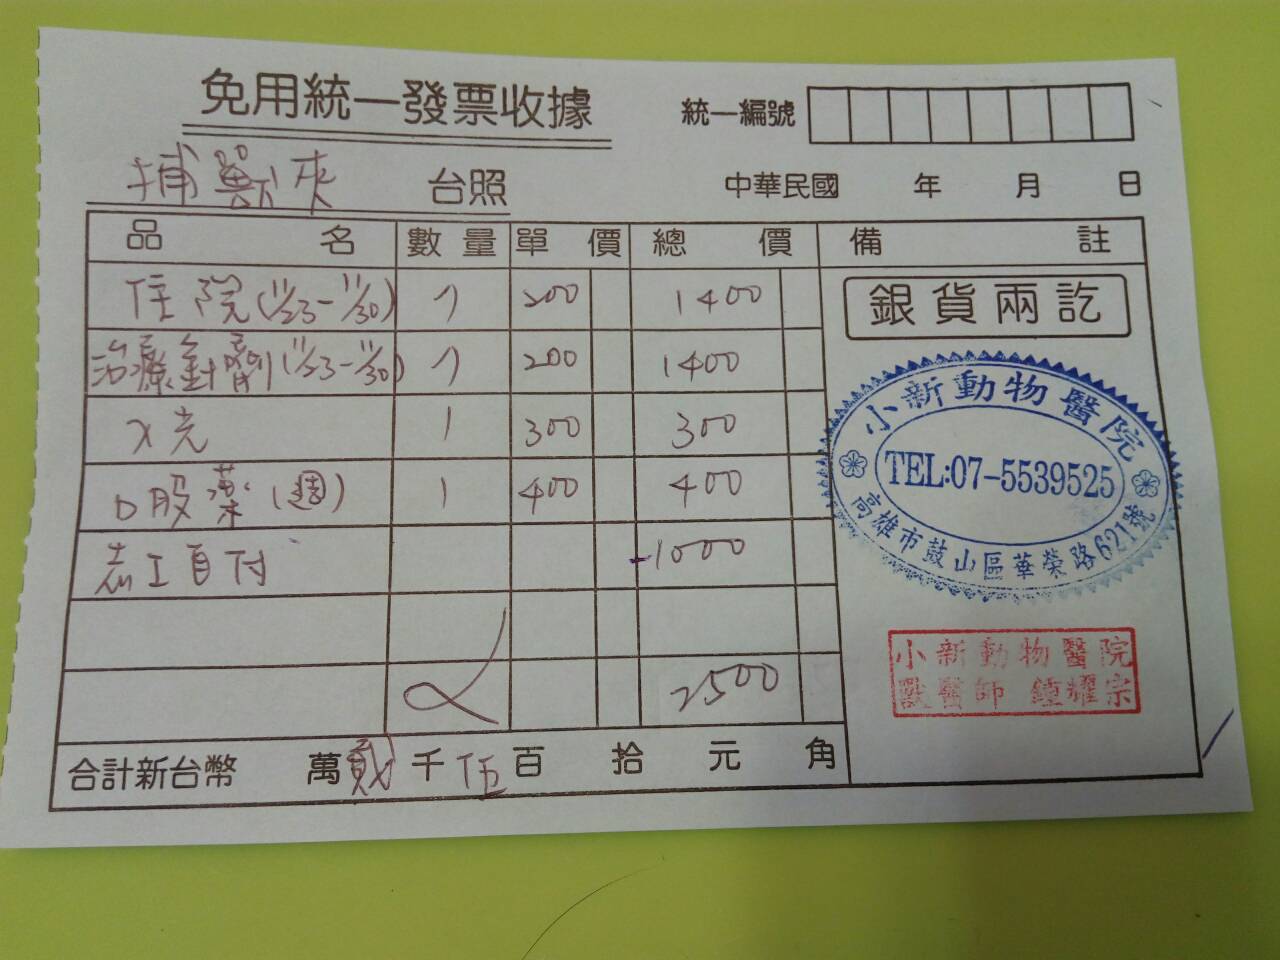 免用統一發票收據
統一編號
捕獸夾 台照
中華民國 年 月 日
品名 數量 單價 總價 備註
住院(11/23-11/30) 7 200 1400
治療針劑(11/23-11/30) 7 200 1400
X光 1 300 300
口股藥(週) 1 400 400
志工自付 -1000
2500
合計新台幣 萬貳千伍百拾元角
銀貨兩訖
小新動物醫院
TEL:07-5539525
高雄市鼓山區華榮路621號
小新動物醫院
獸醫師 鍾耀宗